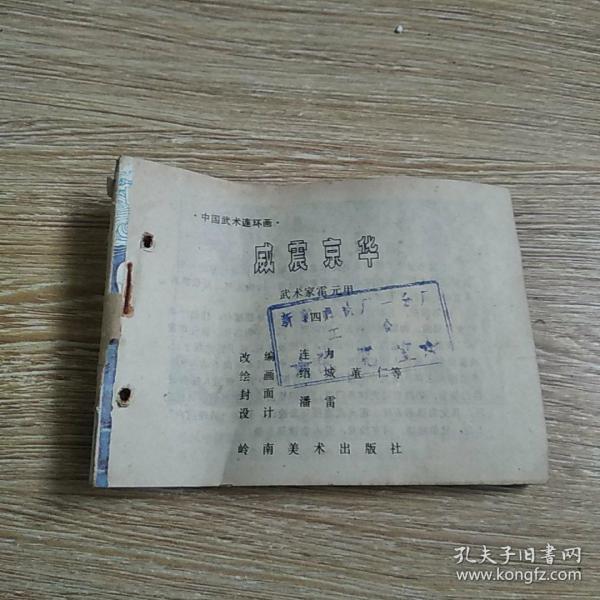 ·中国武术连环画·
威震京华
武术家霍元甲
(四)
工会
改编 连力
绘画 绍城 董仁等
封面
设计 潘雷
岭南美术出版社
孔夫子旧书网
www.kongfz.com